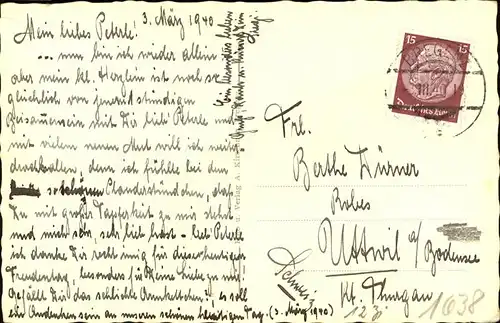 Mein liebes Peterle! 3. März 1940
... nun bin ich wieder allein
aber mein kl. Herzlein ist noch so
glücklich von jenen stündigen
Beisammensein mit Dir lieb' Peterle und
mit vielem neuen Mut will ich weiter
durchhalten, denn ich fühlte bei dem
schönen Plauderstündchen, daß
Du mit großer Tapferkeit zu mir stehst
und mich sehr, sehr lieb hast - lieb' Peterle
ich danke Dir recht innig für diesen heutigen
Freudentag, besonders für Deine Liebe zu mir!
Gefällt Dir das schlichte Armkettchen? es soll
ein Andenken sein an unseren schönen heutigen Tag. (3. März 1940)
Ein besonders liebes
Gute Nacht u. Kuss v. Dein
15 15
Deutsches Reich
Frl.
Berthe Dürner
Robes
Uttwil a/
Bodensee
(Schweiz)
Kt. Thurgau
12 1038